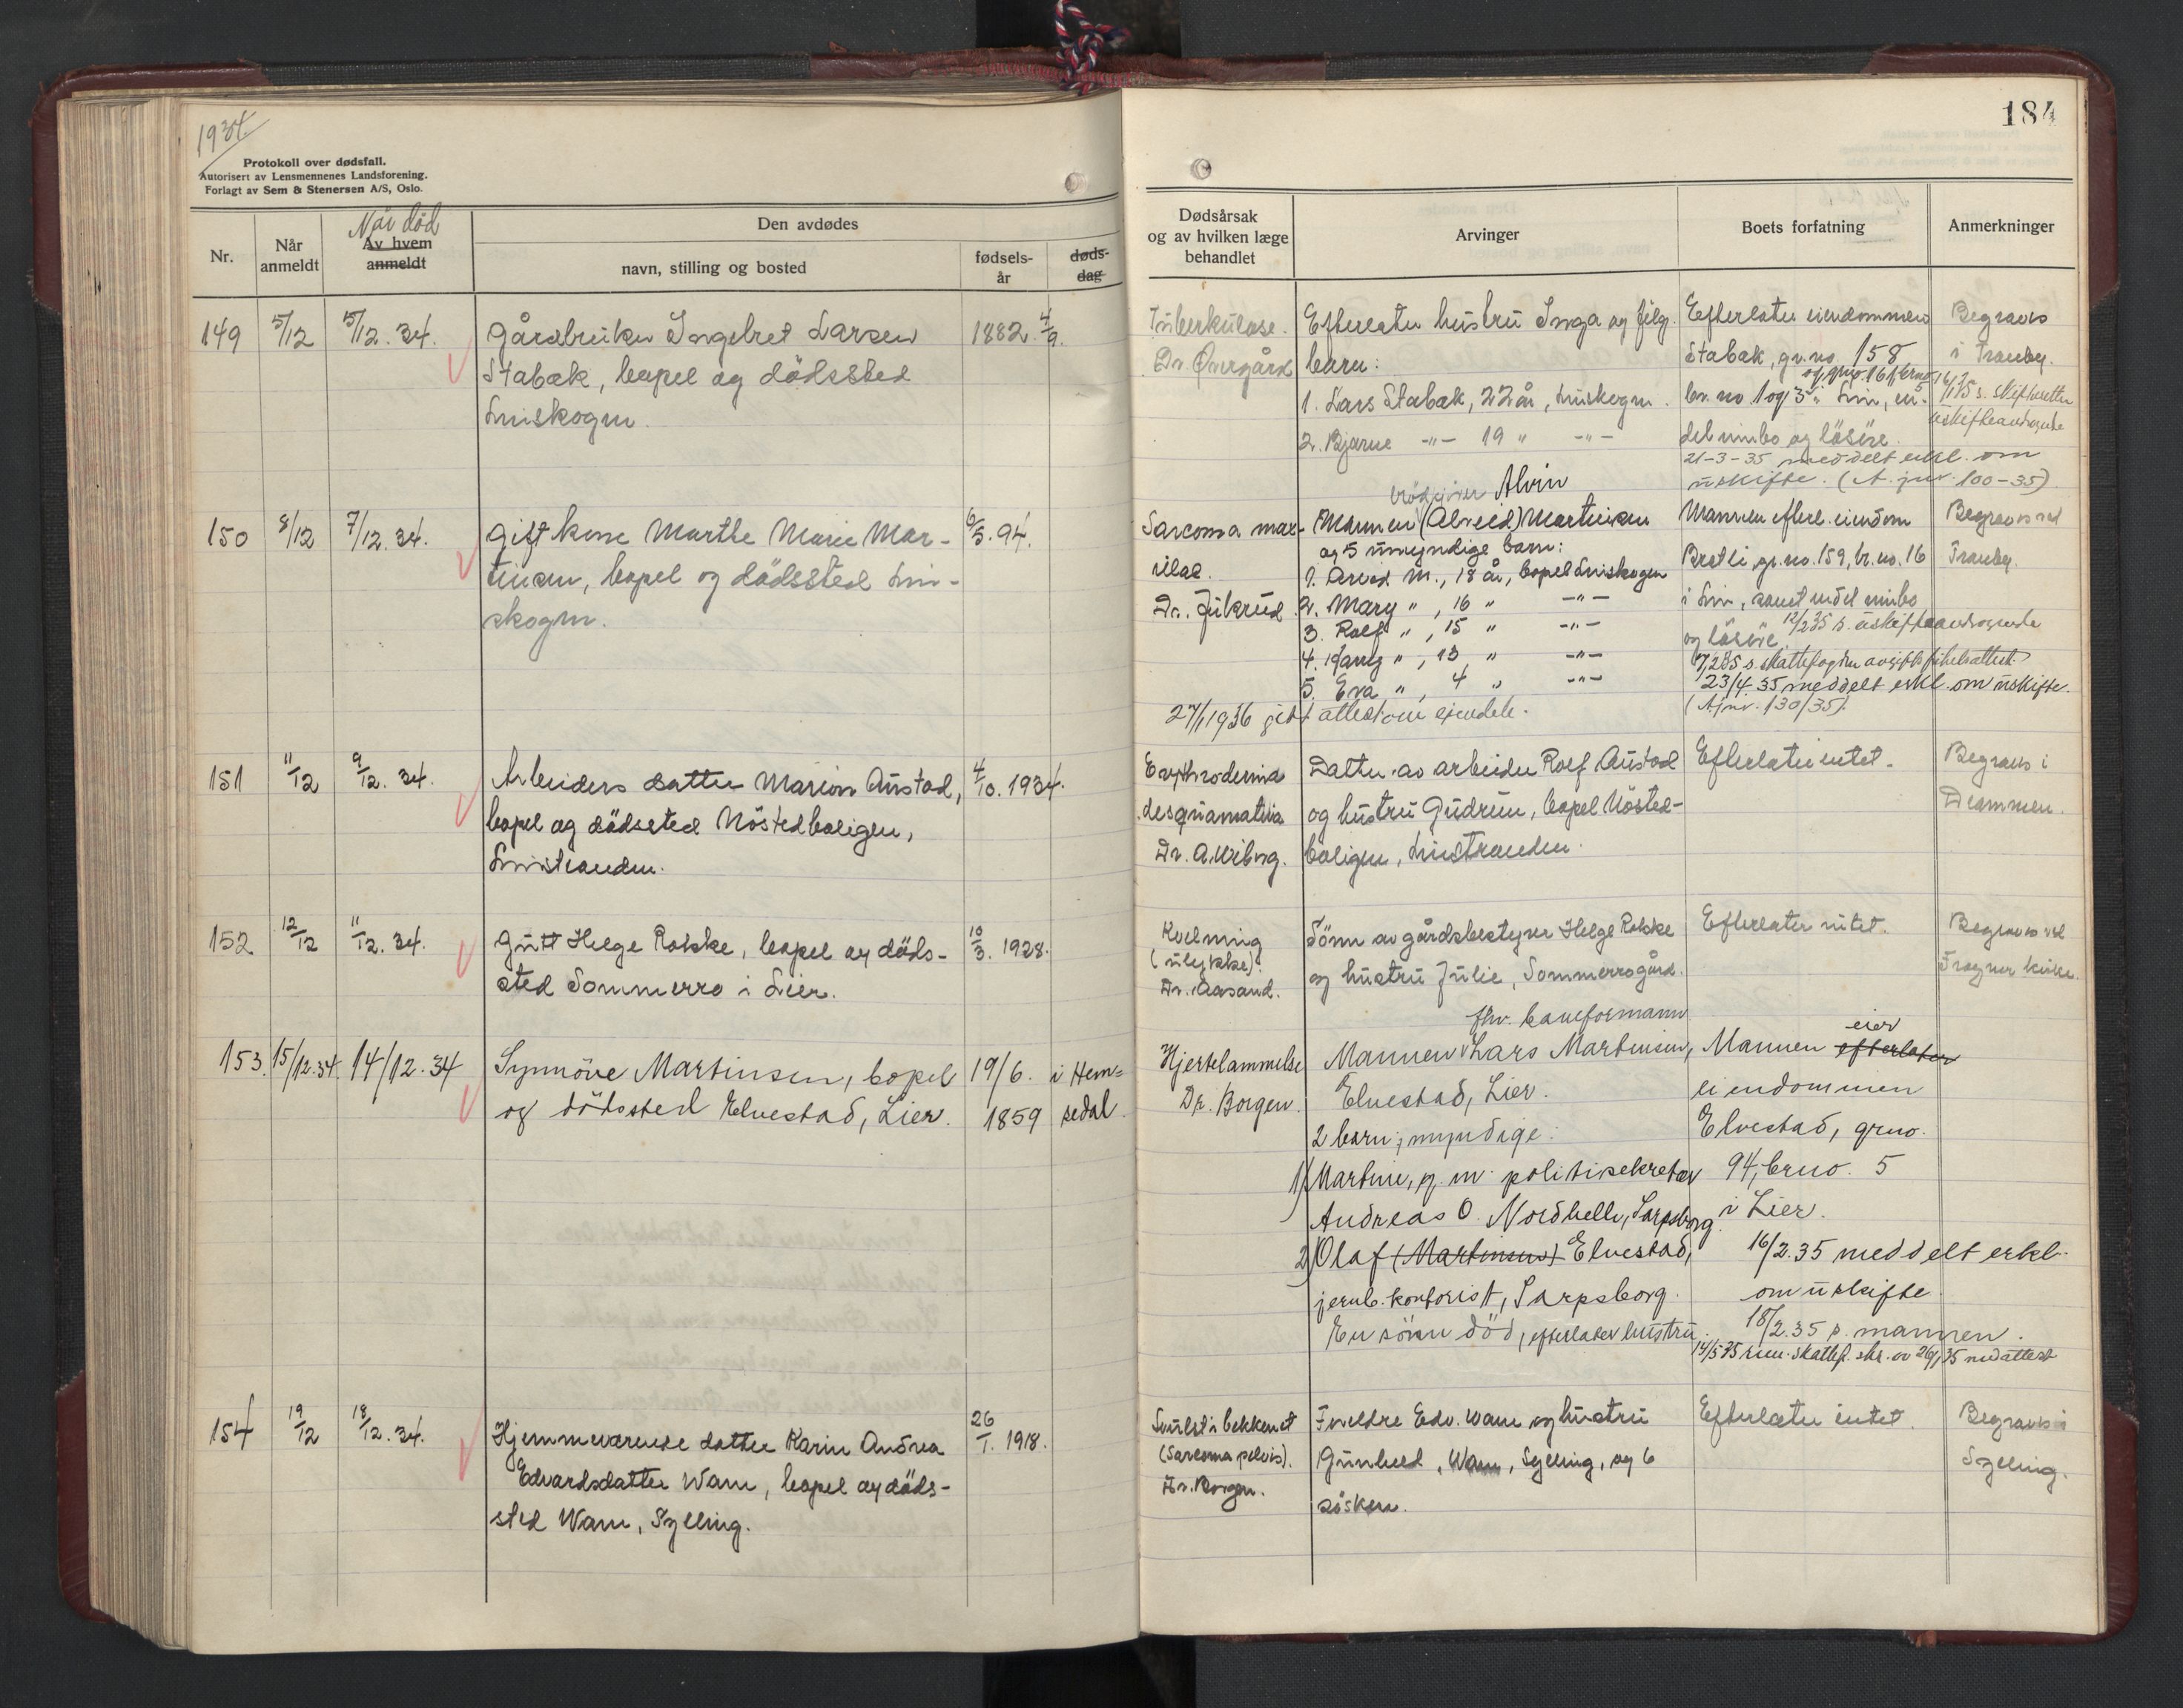 1934.
Protokoll over dødsfall.
Autorisert av Lensmennenes Landsforening.
Forlagt av Sem & Stenersen A/S, Oslo.
184
Nr.
Når anmeldt
Når død
Av hvem anmeldt
Den avdødes
navn, stilling og bosted
fødsels-år
døds-dag
Dødsårsak
og av hvilken læge
behandlet
Arvinger
Boets forfatning
Anmerkninger
149 5/12 5/12. 34. Gårdbruker Ingebret Larsen 1882. 4/9.
Stabæk, bopel og dödssted
Lierskogen.
Tuberkulose.
Dr. Övergård
Efterlater hustru Inga og følg.
barn:
1. Lars Stabæk, 22 år, Lierskogen.
2. Bjarne -"- 19 " -"-
Efterlater eiendommen
Stabæk, gr. no. 158,
og gno. 161 brno
br. no 1 og 3 i Lier, en
del innbo og lösöre.
21-3-35 meddelt erkl. om
uskifte. (A. jnr. 100-35)
Begraves
i Tranby.
150 8/12 7/12. 34. Gift kone Marthe Marie Mar- 6/5. 94.
tinsen, bopel og dödssted Lier-
skogen.
Sarcoma max-
illae.
Dr. Jükrud
Alvin
Mannen (Alveid) Martinsen
og 5 umyndige barn:
1. Arvid M., 18 år, bopel Lierskogen
2. Mary ", 16 " -"-
3. Rolf ", 15 " -"-
4. Hans ", 13 " -"-
5. Eva ", 4 " -"-
27/1 1936 gitt attest om eiendele.
Mannen efterl. eiendom
Bratli, gr. no. 159, br. no. 16
i Lier, samt endel innbo
og lösöre 12/2 35 s. uskifteandragende
23/4 35 meddelt erkl. om uskifte.
(A. jnr. 130/35).
Begraves ved
Tranby.
151 11/12 9/12. 34. Arbeiders datter Marion Austad, 4/10. 1934.
bopel og dödssted Nöstedboligen,
Lierstranden.
Erythrodermia
desquamativa
Dr. A. Wiborg.
Datter av arbeider Rolf Austad
og hustru Gudrun, bopel Nösted-
boligen, Lierstranden.
Efterlater intet.
Begraves i
Drammen.
152 12/12 11/12. 34. Gutt Helge Rokke, bopel og döds- 10/3. 1928.
sted Sommerro i Lier.
Kvelning
(ulykke).
Dr. Aasand.
Sönn av gårdsbestyrer Helge Rokke
og hustru Julie, Sommerro gård.
Efterlater intet.
Begraves ved
Frogner kirke.
153. 15/12.34. 14/12.34 Synnöve Martinsen, bopel 19/6. i Hem=
og dödssted Elvestad, Lier. 1859 sedal.
Hjertelammelse
Dr. Borgen.
fhv. baneformann
Mannen Lars Martinsen,
Elvestad, Lier.
2 barn, myndige:
1) Martine, g. m. politisekretær
Andreas O. Nordhelle, Sarpsborg.
2) Olaf (Martinsen) Elvestad,
jernb. kontorist, Sarpsborg.
En sönn död, efterlater hustru.
Mannen efterlater eier
eiendommen
Elvestad, grno.
94, brno. 5
i Lier.
16/2.35 meddelt erkl.
om uskifte
18/2.35 s. mannen.
154 19/12 18/12. 34. Hjemmeværende datter Karin Andrea 26/1. 1918.
Edvardsdatter Wam, bopel og döds-
sted Wam, Sylling.
Svulst i bekkenet
(Sarcoma pelvis).
Dr. Borgen.
Foreldre Edv. Wam og hustru
Gunhild, Wam, Sylling, og 6
sösken.
Efterlater intet.
Begraves i
Sylling.